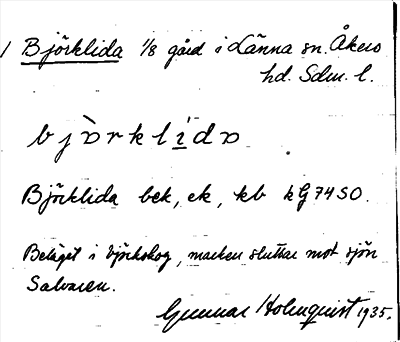 1 Björklida 1/8 gård i Länna sn. Åkers
hd. Sdm. l.
bjòrklida
Björklida bek, ek, kb kG 74 SO.
Beläget i björkskog, marken sluttar mot sjön
Salvaren.
Gunnar Holmquist 1935.